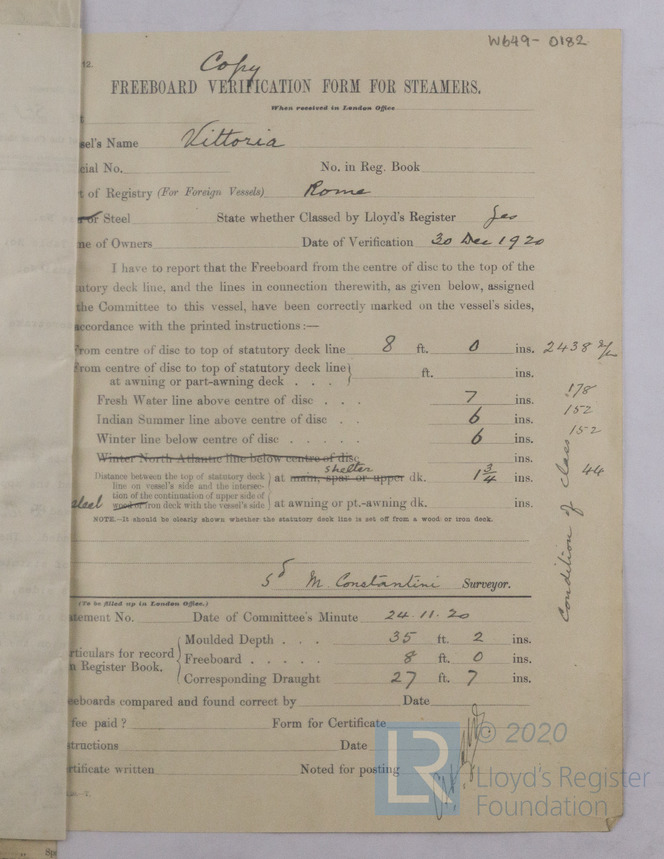 W649-0182
12.
Copy
FREEBOARD VERIFICATION FORM FOR STEAMERS.
When received in London Office
sel's Name Vittoria
cial No. No. in Reg. Book
t of Registry (For Foreign Vessels) Rome
or Steel State whether Classed by Lloyd's Register Yes
me of Owners Date of Verification 30 Dec 1920
I have to report that the Freeboard from the centre of disc to the top of the
utory deck line, and the lines in connection therewith, as given below, assigned
the Committee to this vessel, have been correctly marked on the vessel's sides,
accordance with the printed instructions:—
From centre of disc to top of statutory deck line 8 ft. 0 ins. 2438
From centre of disc to top of statutory deck line
at awning or part-awning deck . . . ft. ins.
Fresh Water line above centre of disc . . . 7 ins. 178
Indian Summer line above centre of disc . . 6 ins. 152
Winter line below centre of disc . . . . . 6 ins. 152
Winter North Atlantic line below centre of disc ins.
shelter
Distance between the top of statutory deck
line on vessel's side and the intersec-
tion of the continuation of upper side of
steel wood or iron deck with the vessel's side
at main, spar or upper dk. 1 3/4 ins. 44
at awning or pt.-awning dk. ins.
NOTE.—It should be clearly shown whether the statutory deck line is set off from a wood or iron deck.
Condition of class
sd M. Constantini Surveyor.
(To be filled up in London Office.)
atement No. Date of Committee's Minute 24.11.20
rticulars for record
n Register Book.
Moulded Depth . . . 35 ft. 2 ins.
Freeboard . . . . . 8 ft. 0 ins.
Corresponding Draught 27 ft. 7 ins.
eeboards compared and found correct by Date
fee paid? Form for Certificate
structions Date
rtificate written Noted for posting
LR
© 2020
Lloyd's Register
Foundation